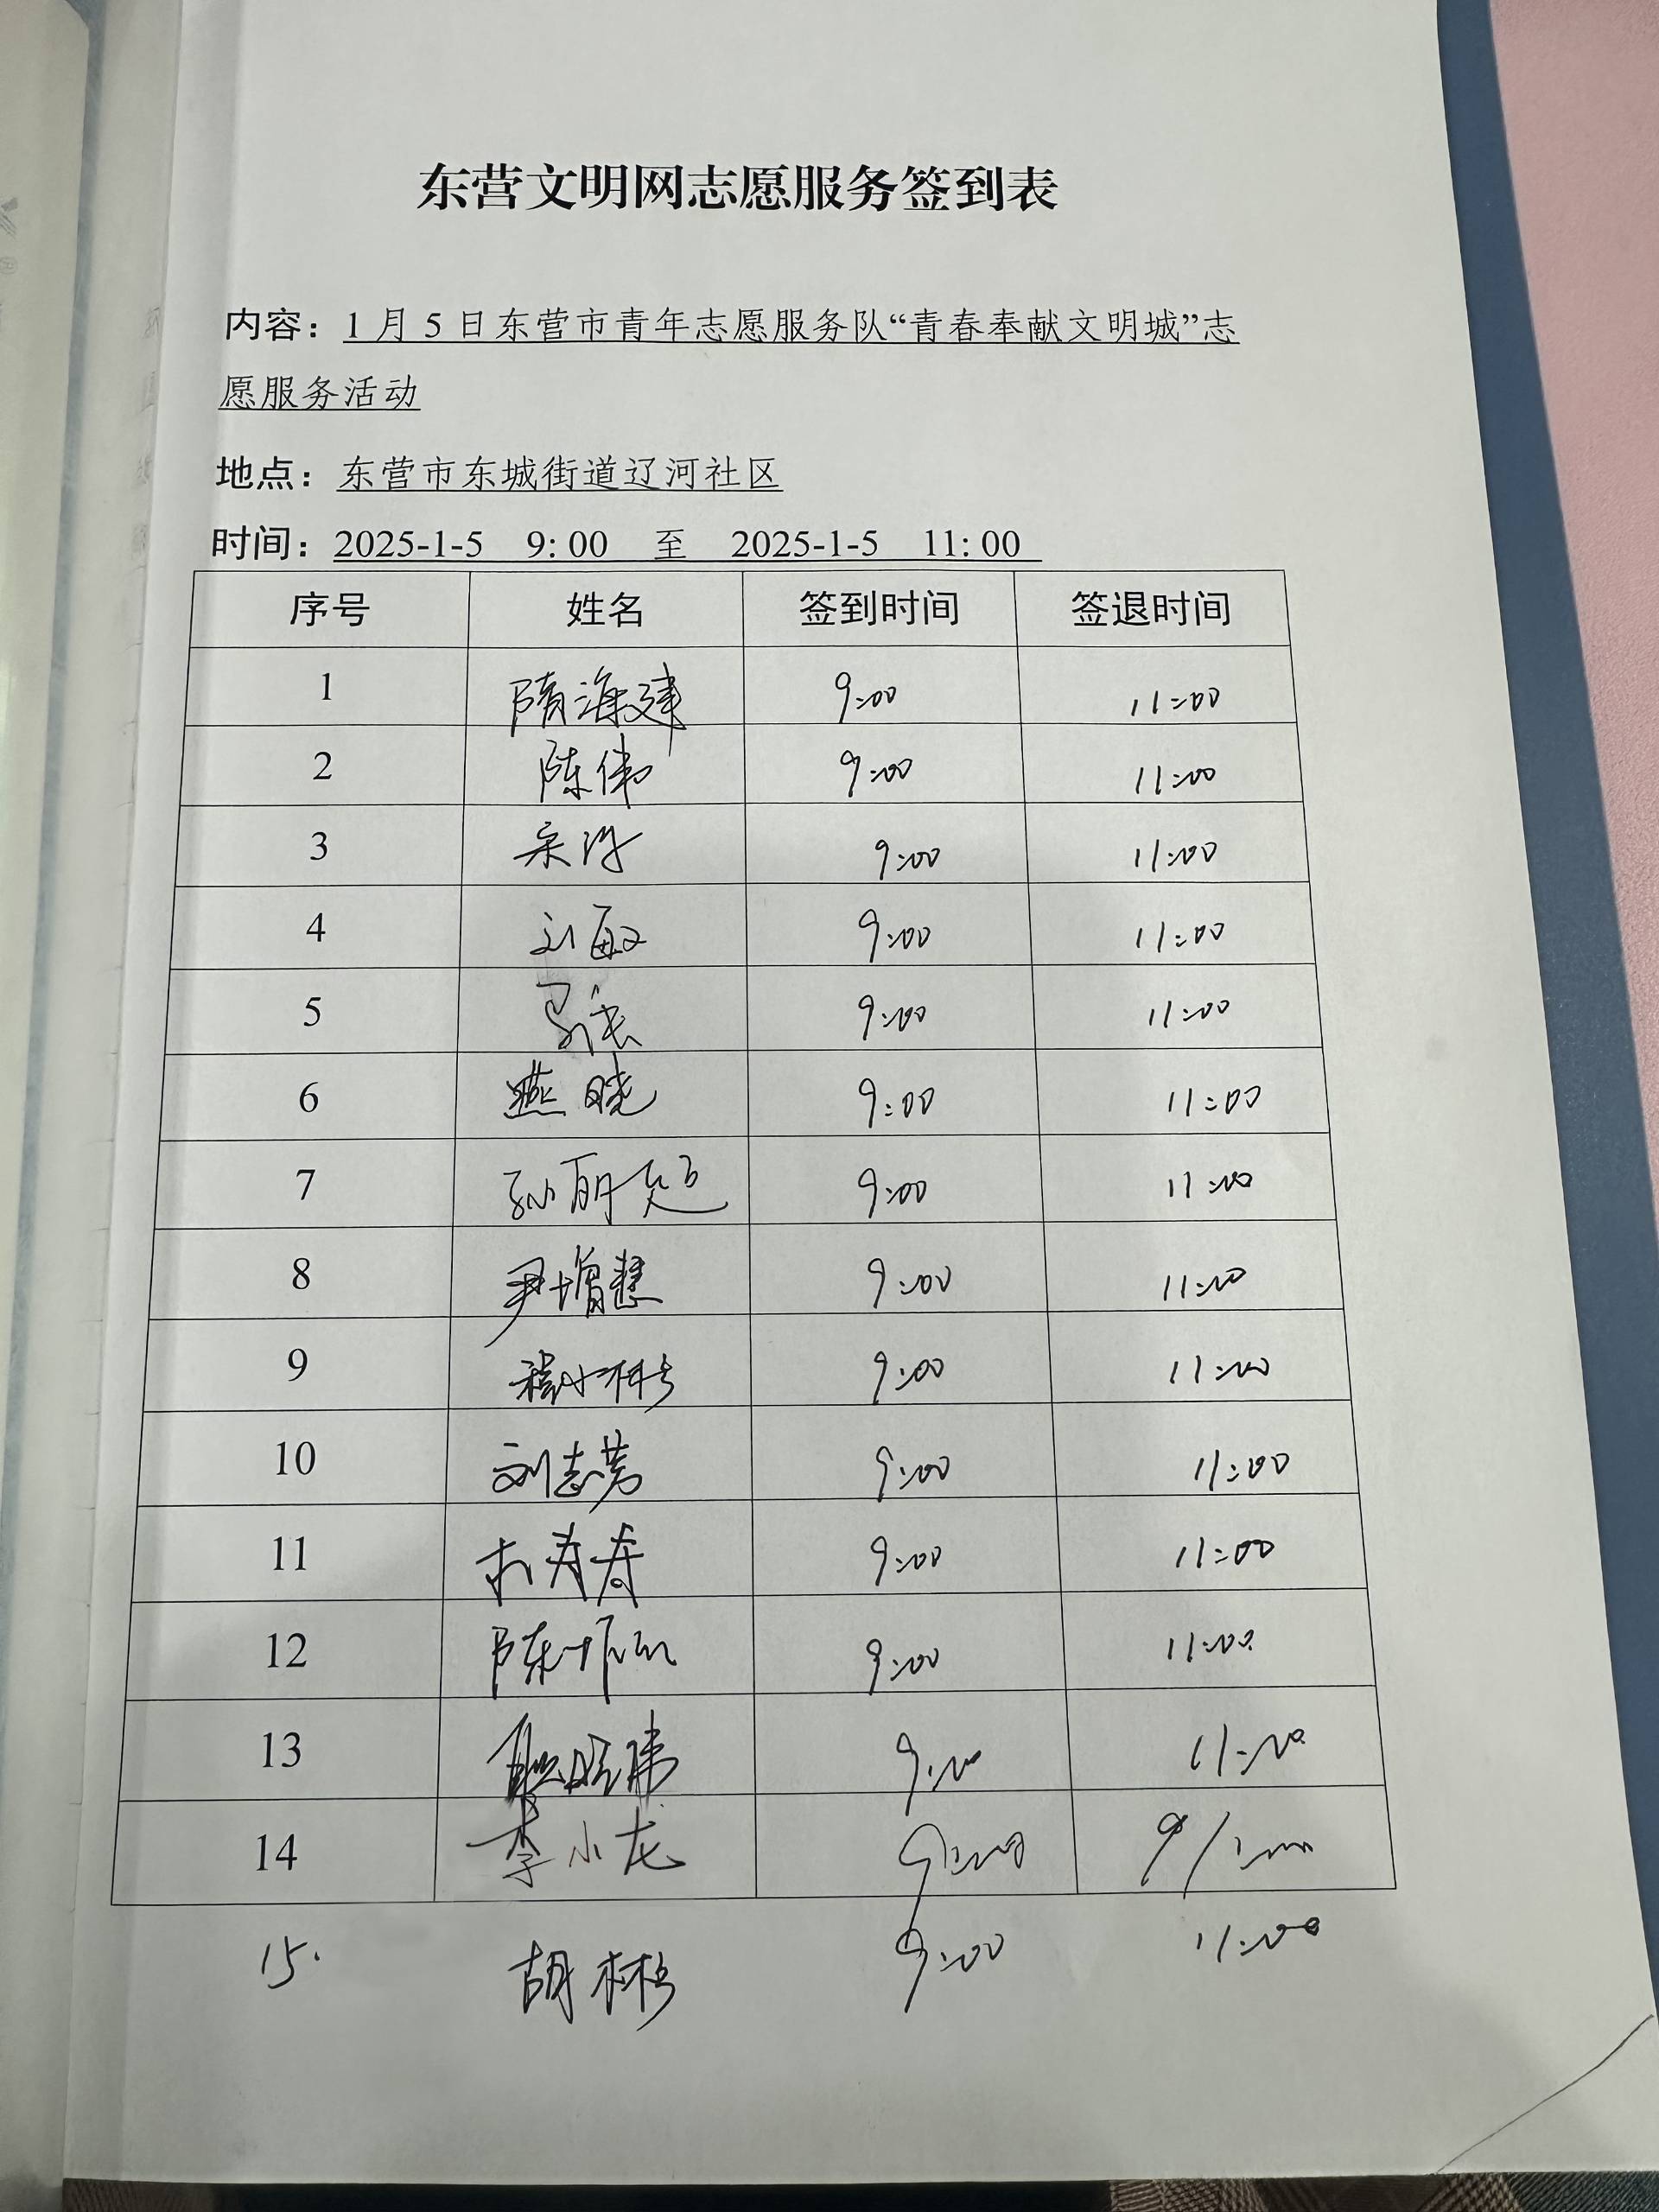 东营文明网志愿服务签到表
内容：1 月 5 日东营市青年志愿服务队“青春奉献文明城”志
愿服务活动
地点：东营市东城街道辽河社区
时间：2025-1-5 9:00 至 2025-1-5 11:00
序号 姓名 签到时间 签退时间
1 隋海建 9:00 11:00
2 陈伟 9:00 11:00
3 9:00 11:00
4 刘敏 9:00 11:00
5 9:00 11:00
6 燕晓 9:00 11:00
7 孙丽超 9:00 11:00
8 尹增慧 9:00 11:00
9 程小彬 9:00 11:00
10 刘志芳 9:00 11:00
11 9:00 11:00
12 9:00 11:00
13 9:00 11:00
14 李小龙 9:00
15. 胡彬 9:00 11:00